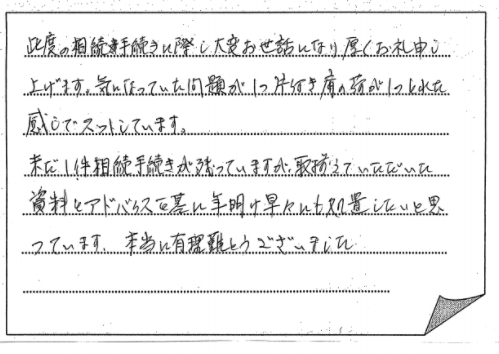 此度の相続手続きに際し大変お世話になり厚くお礼申し
上げます。気になっていた問題が1つ片付き肩の荷が1つとれた
感じでスットしています。
未だ1件相続手続きが残っていますが、取揃えていただいた
資料とアドバイスを基に年明け早々にも処置したいと思
っています。本当に有理難とうございました